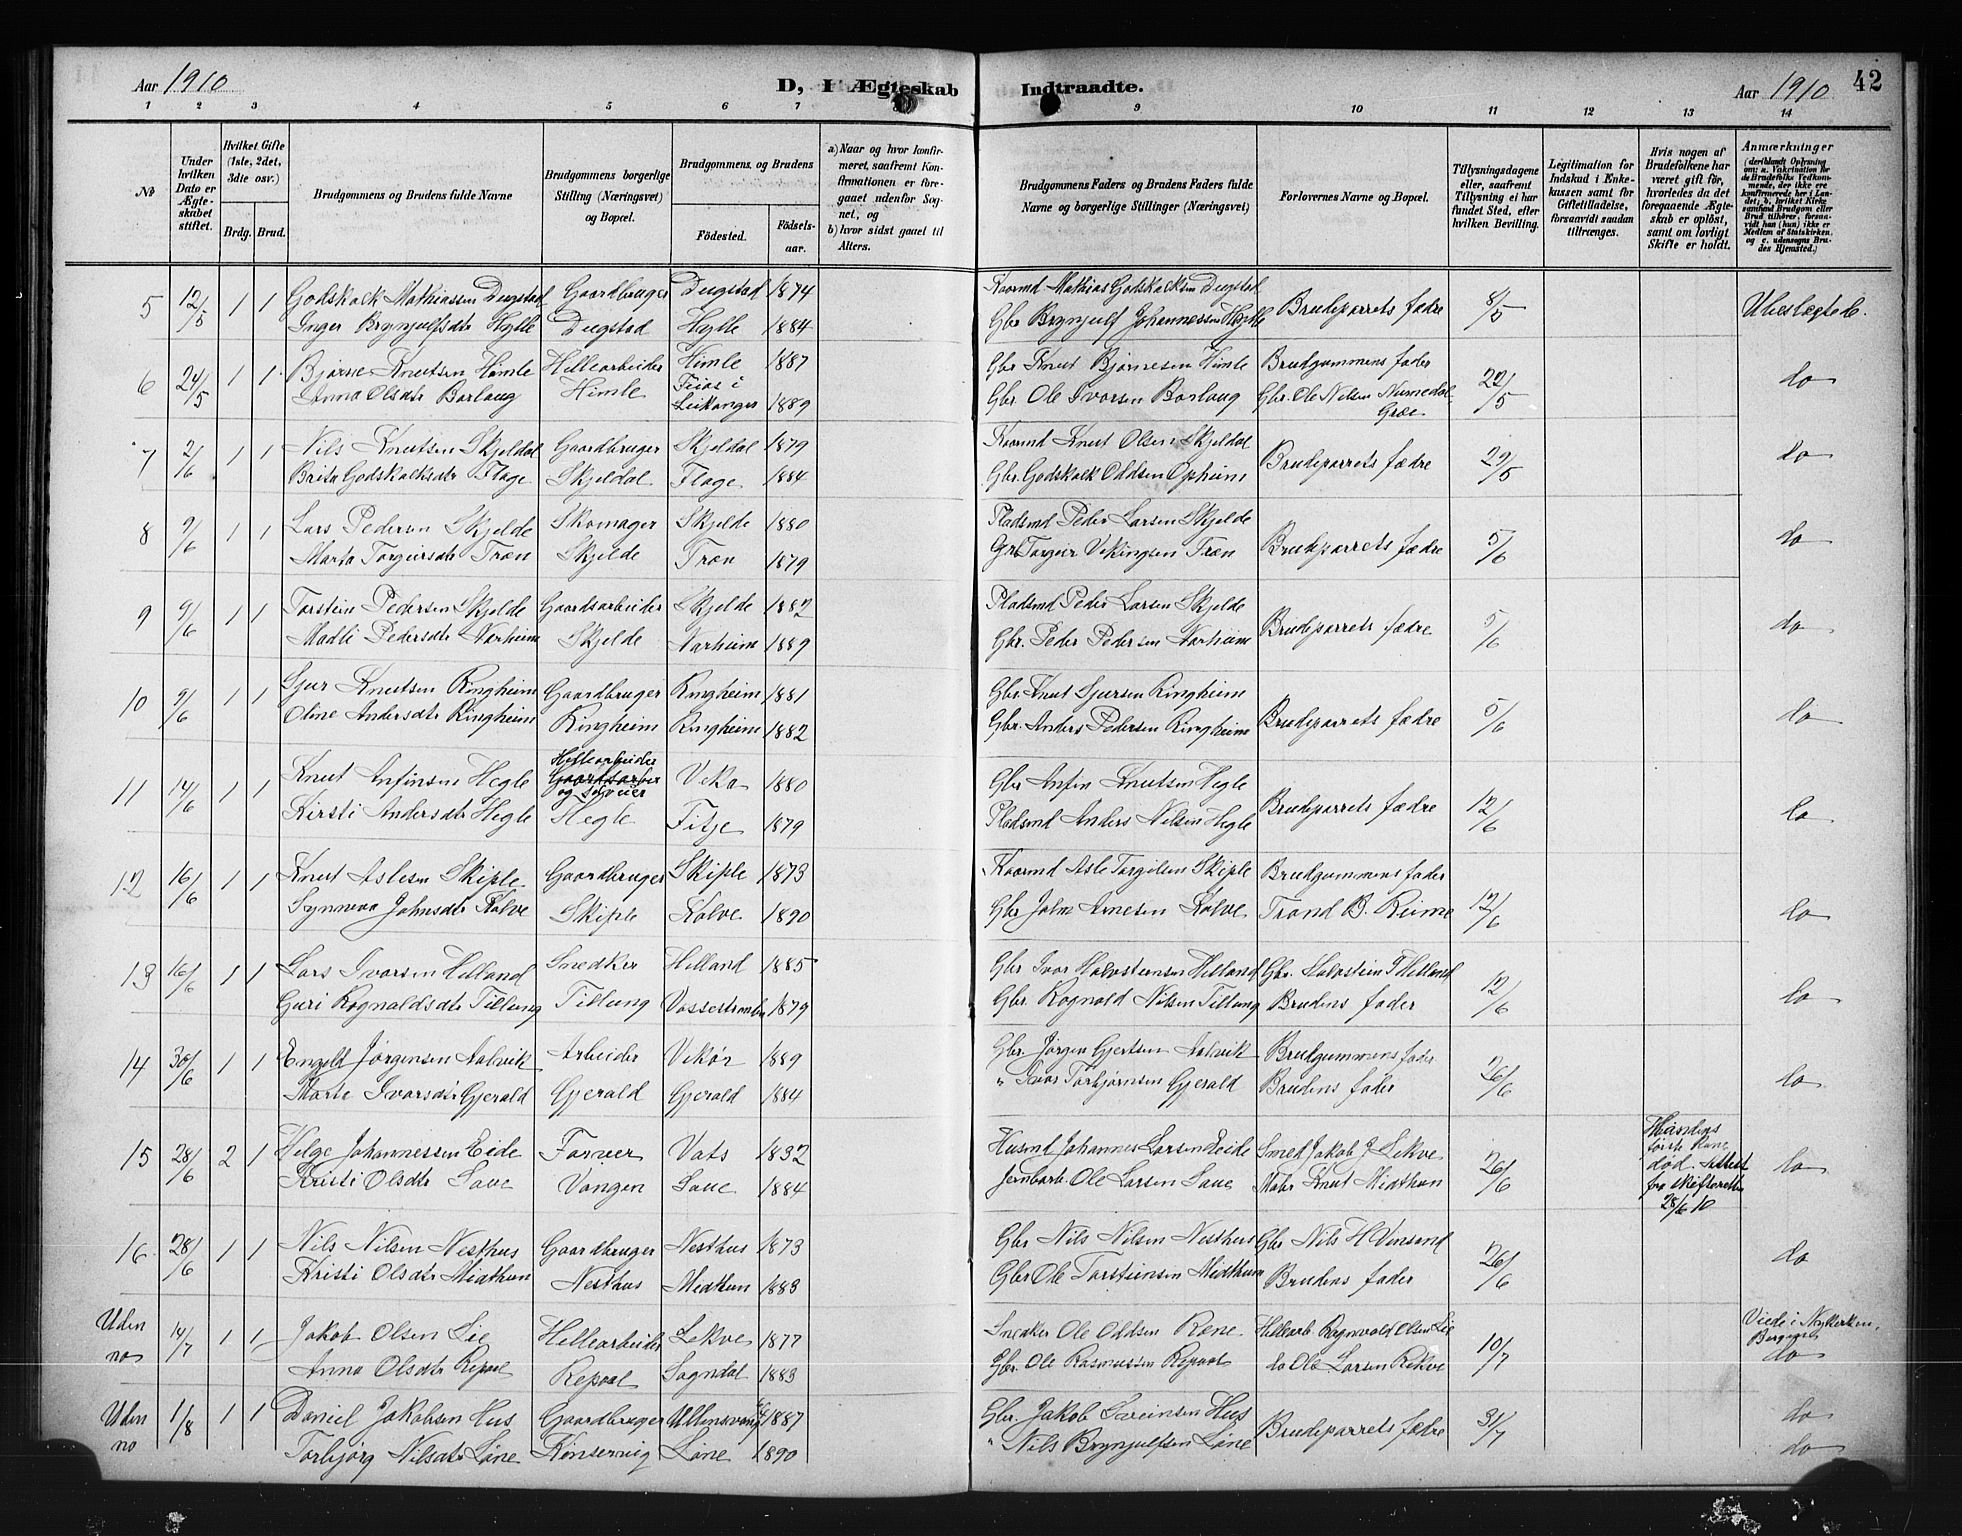 Aar 1910
D, I Ægteskab
Indtraadte.
Aar 1910
42
1 2 3 4 5 6 7
9 10 11 12 13 14
No
Under hvilken Dato er Ægteskabet stiftet.
Hvilket Gifte (1ste, 2det, 3die osv.)
Brdg. Brud.
Brudgommens og Brudens fulde Navne
Brudgommens borgerlige Stilling (Næringsvei) og Bopæl.
Brudgommens og Brudens
Fødested.
Fødselsaar.
a) Naar og hvor konfirmeret, saafremt Konfirmationen er foregaaet udenfor Sognet, og
b) hvor sidst gaaet til Alters.
Brudgommens Faders og Brudens Faders fulde Navne og borgerlige Stillinger (Næringsvei)
Forlovernes Navne og Bopæl.
Tillysningsdagene eller, saafremt Tillysning ei har fundet Sted, efter hvilken Bevilling.
Legitimation for Indskud i Enkekassen samt for Giftetilladelse, forsaavidt saadan tiltrænges.
Hvis nogen af Brudefolkene har været gift før, hvorledes da det foregaaende Ægteskab er opløst, samt om lovligt Skifte er holdt.
Anmærkninger
(deriblandt Oplysning om: a. Vakcination for de Brudefolks Vedkommende, der ikke ere konfirmerede her i Landet; b. hvilket Kirkesamfund Brudgom eller Brud tilhører, forsaavidt han (hun) ikke er Medlem af Statskirken, og c. udensogns Brudes Hjemsted.)
5 12/5 1 1 Godskalk Mathiassen Dugstad Gaardbruger Dugstad 1874 Kaarmd Mathias Godskalksen Dugstad Brudeparrets fædre 8/5 Ubeslægtede.
Inger Brynjulfsdtr Hylle Dugstad Hylle 1884 Gbr Brynjulf Johannessen Hylle
6 24/5 1 1 Bjørne Knutsen Himle Hellearbeider Himle 1887 Gbr Knut Bjørnesen Himle Brudgummens fader 22/5 do
Anna Olsdtr Borlaug Himle Feios i Leikanger 1889 Gbr. Ole Ivarsen Borlaug Gbr. Ole Nilsen Numedal Græe
7 2/6 1 1 Nils Knutsen Skjeldal Gaardbruger Skjeldal 1879 Kaarmd Knut Olsen Skjeldal Brudeparrets fædre 29/5 do
Brita Godskalksdtr Flage Skjeldal Flage 1884 Gbr. Godskalk Oddsen Opheim
8 9/6 1 1 Lars Pedersen Skjelde Skomager Skjelde 1880 Pladsmd Peder Larsen Skjelde Brudeparrets fædre 5/6 do
Marta Torgiersdtr Træn Skjelde Træn 1879 Gbr Torgier Vikingsen Træn
9 9/6 1 1 Torstein Pedersen Skjelde Gaardsarbeider Skjelde 1882 Pladsmd Peder Larsen Skjelde Brudeparrets fædre 5/6 do
Madli Pedersdtr Narheim Skjelde Narheim 1889 Gbr. Peder Pedersen Narheim
10 9/6 1 1 Sjur Knutsen Ringheim Gaardbruger Ringheim 1881 Gbr Knut Sjursen Ringheim Brudeparrets fædre 5/6 do
Oline Andersdtr Ringheim Ringheim Ringheim 1882 Gbr. Anders Pedersen Ringheim
11 14/6 1 1 Knut Anfinsen Hegle Hellearbeider Veka 1880 Gbr Anfin Knutsen Hegle Brudeparrets fædre 12/6 do
Kirsti Andersdtr Hegle Hegle Fitje 1879 Pladsmd Anders Nilsen Hegle
12 16/6 1 1 Knut Aslesen Skiple Gaardbruger Skiple 1873 Kaarmd Asle Torgilsen Skiple Brudgummens fader 12/6 do
Synneva Johnsdtr Kolve Skiple Kolve 1890 Gbr John Arnesen Kolve Trond B. Reime
13 16/6 1 1 Lars Ivarsen Helland Snedker Helland 1885 Gbr Ivar Halvsteinsen Helland Gbr. Halvstein I Helland 12/6 do
Guri Rognaldsdtr Tillung Tillung Vossestranden 1879 Gbr. Rognald Nilsen Tillung Brudens fader
14 30/6 1 1 Engeld Jørgensen Aalvik Arbeider Vikør 1889 Gbr. Jørgen Gjertsen Aalvik Brudgummens fader 26/6 do
Marta Ivarsdtr Gjerald Gjerald Gjerald 1884 " Ivar Torbjørnsen Gjerald Brudens fader
15 28/6 2 1 Helge Johannessen Eide Farver Vats 1832 Husmd Johannes Larsen Eide Smed Jakob J Lekve 26/6 Mandens første kone død. Attest fra skifteretten 28/6 10 do
Kristi Olsdtr Saue Vangen Saue 1884 Jernbarb. Ole Larsen Saue Knut Midthun
16 28/6 1 1 Nils Nilsen Nesthus Gaardbruger Nesthus 1873 Gbr Nils Nilsen Nesthus Gbr Nils H Vinsand 26/6 do
Kristi Olsdtr Midthun Nesthus Midthun 1883 Gbr Ole Torsteinsen Midthun Brudens fader
Uden no 14/7 1 1 Jakob Olsen Lie Hellearbeider Lekve 1877 Snedker Ole Oddsen Rene Hellearb Rognvald Olsen Lie 10/7 Viede i Nykirken, Bergen do
Anna Olsdtr Repaal Repaal Sogndal 1883 Gbr. Ole Rasmussen Repaal do Ole Larsen Rekve
Uden no 1/8 1 1 Daniel Jakobsen Hus Gaardbruger Ullensvang 1887 Gbr. Jakob Sveinsen Hus Brudeparrets fædre 31/7 do
Torbjørg Nilsdtr Løne Kinservig Løne 1890 " Nils Brynjulfsen Løne do